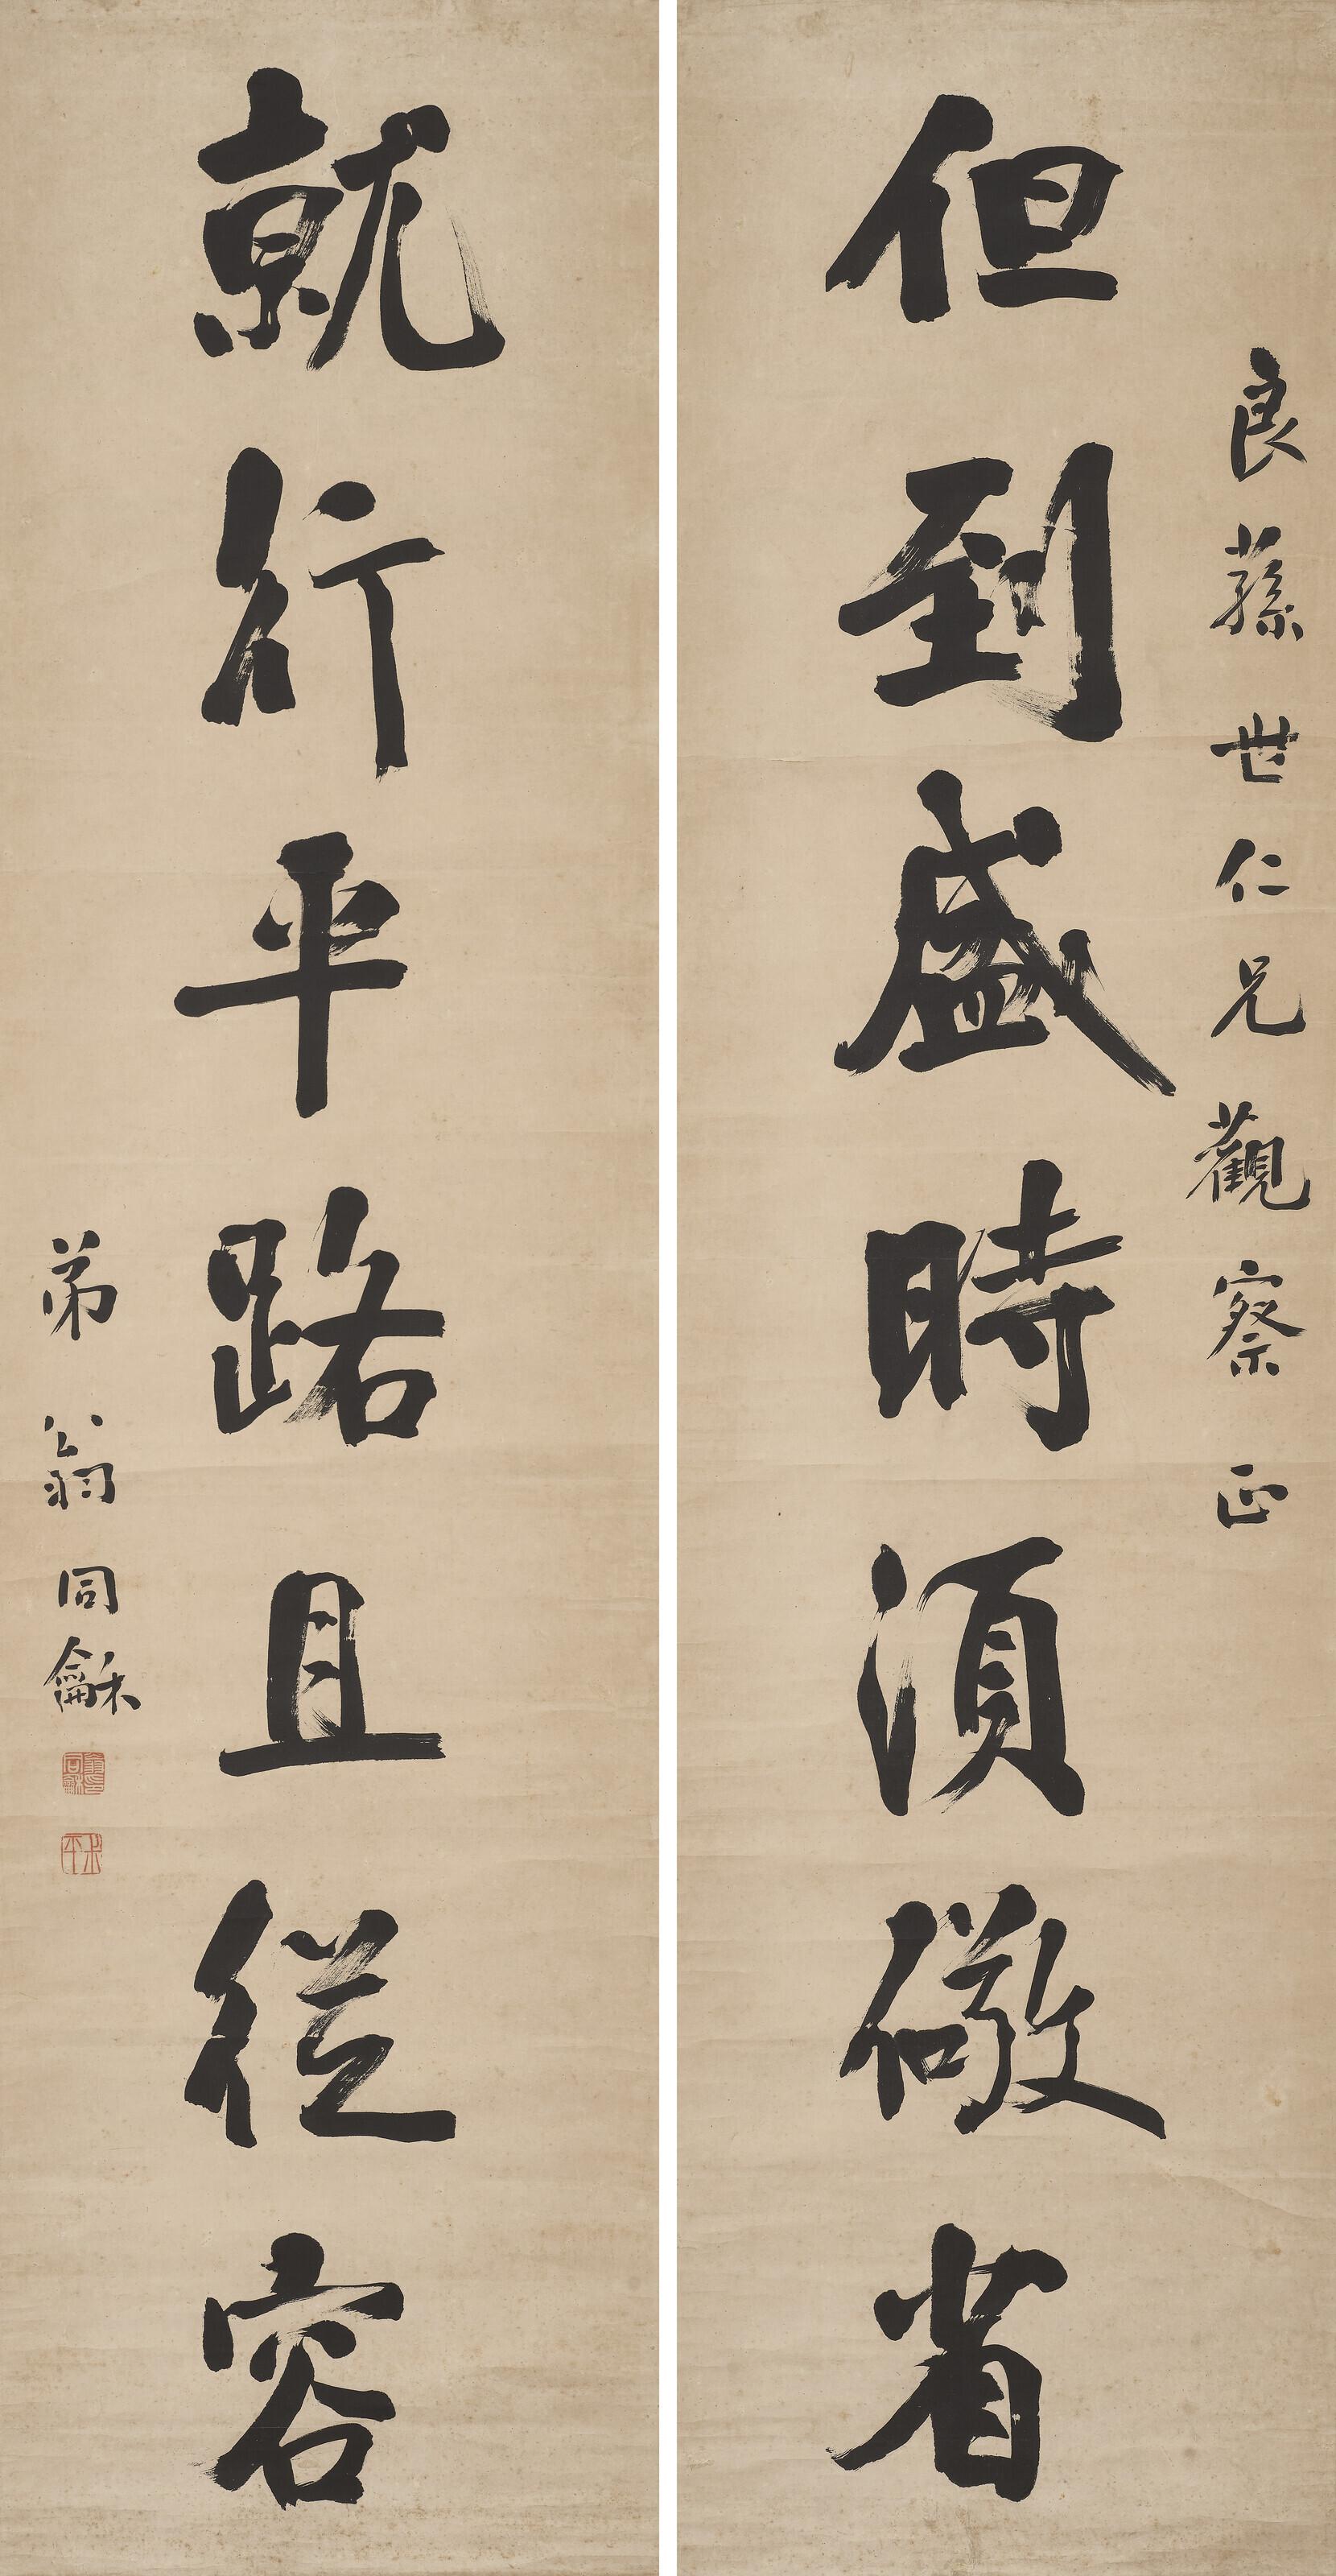 但到盛時須儆省
良蓀世仁兄觀察正
就行平路且從容
弟翁同龢
翁同龢印
叔平